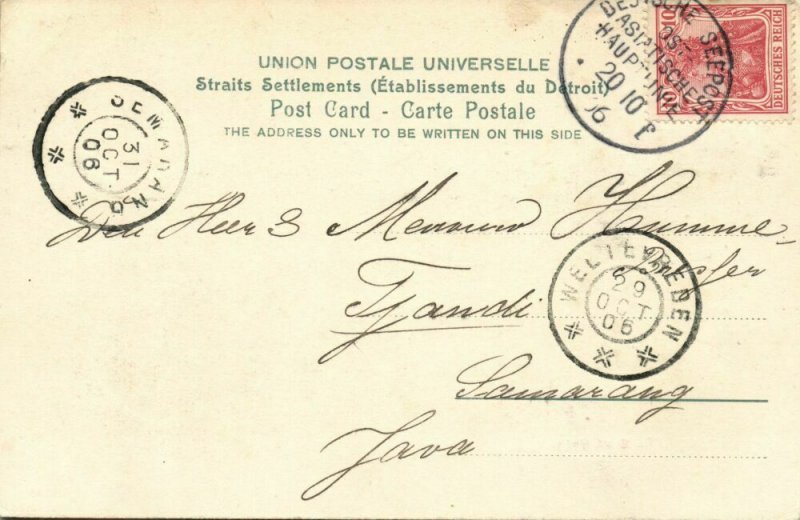 UNION POSTALE UNIVERSELLE
Straits Settlements (Établissements du Détroit)
Post Card - Carte Postale
THE ADDRESS ONLY TO BE WRITTEN ON THIS SIDE
DEUTSCHE SEEPOST
OST-
ASIATISCHE
HAUPTLINIE
20 10
06
10 10
DEUTSCHES REICH
SEMARANG
31
OCT
06
Den Heer & Mevrouw Humme-
Tjandi
WELTEVREDEN
29
OCT
06
Samarang
Java